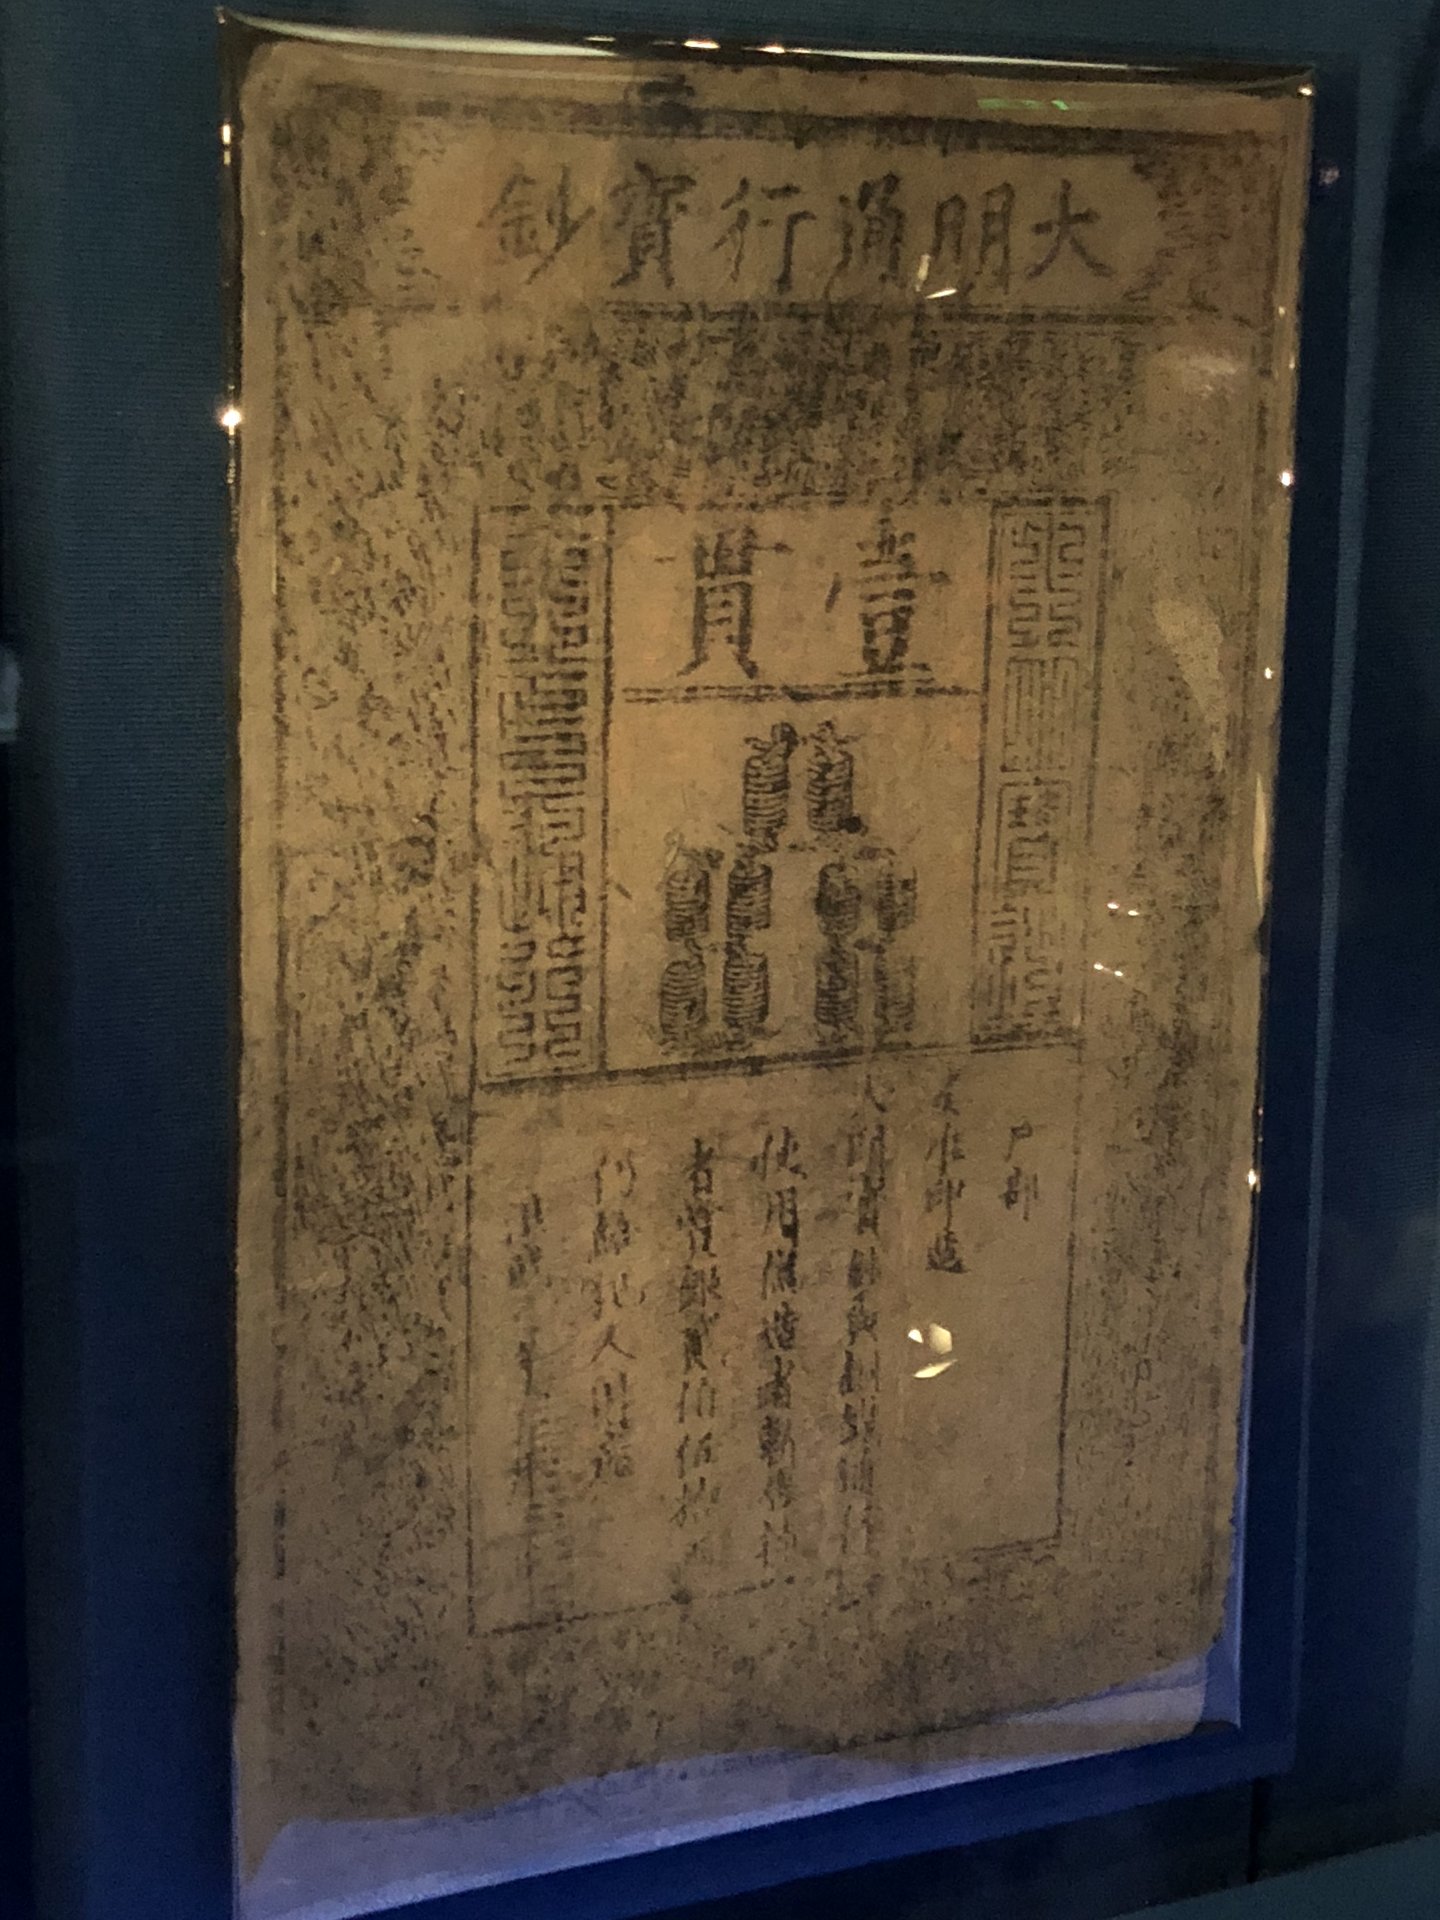 大明通行寶鈔
壹貫
大明寶鈔
天下通行
戶部
奏准印造
大明寶鈔與銅錢通行
使用偽造者斬告捕
者賞銀貳佰伍拾兩
仍給犯人財產
洪武 年 月